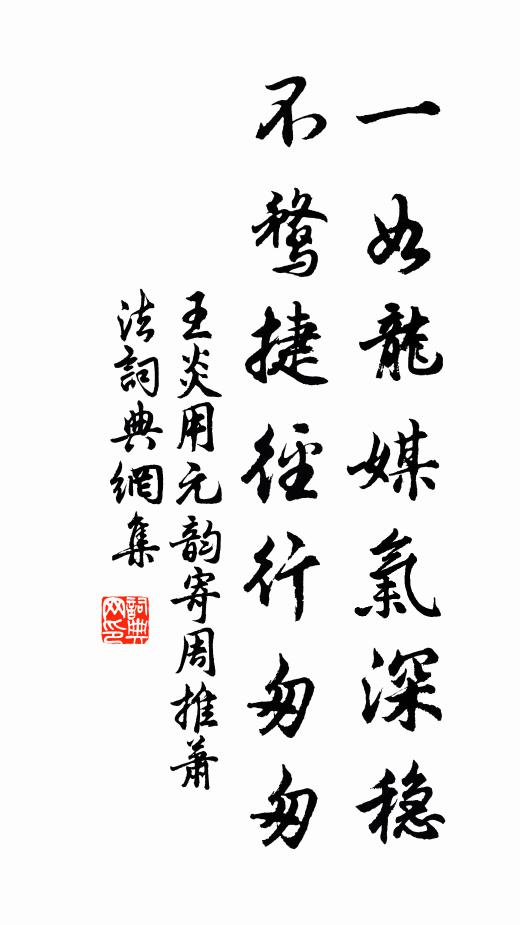 一如龍媒氣深穩
不騖捷徑行匆匆
王炎用元韵寄周推蕭
法詞典網集
詞典
网印